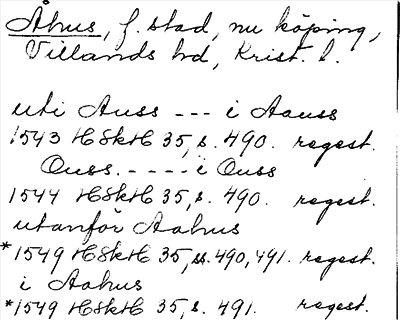 Åhus, f. stad, nu köping,
Villands hd, Krist. l.
uti Auss --- i Aauss
1543 HSkH 35, s. 490. regest.
Ouss. ---- i Ouss
1544 HSkH 35, s. 490. regest.
utanför Aahus
*1549 HSkH 35, ss. 490, 491. regest.
i Aahus
*1549 HSkH 35, s. 491. regest.